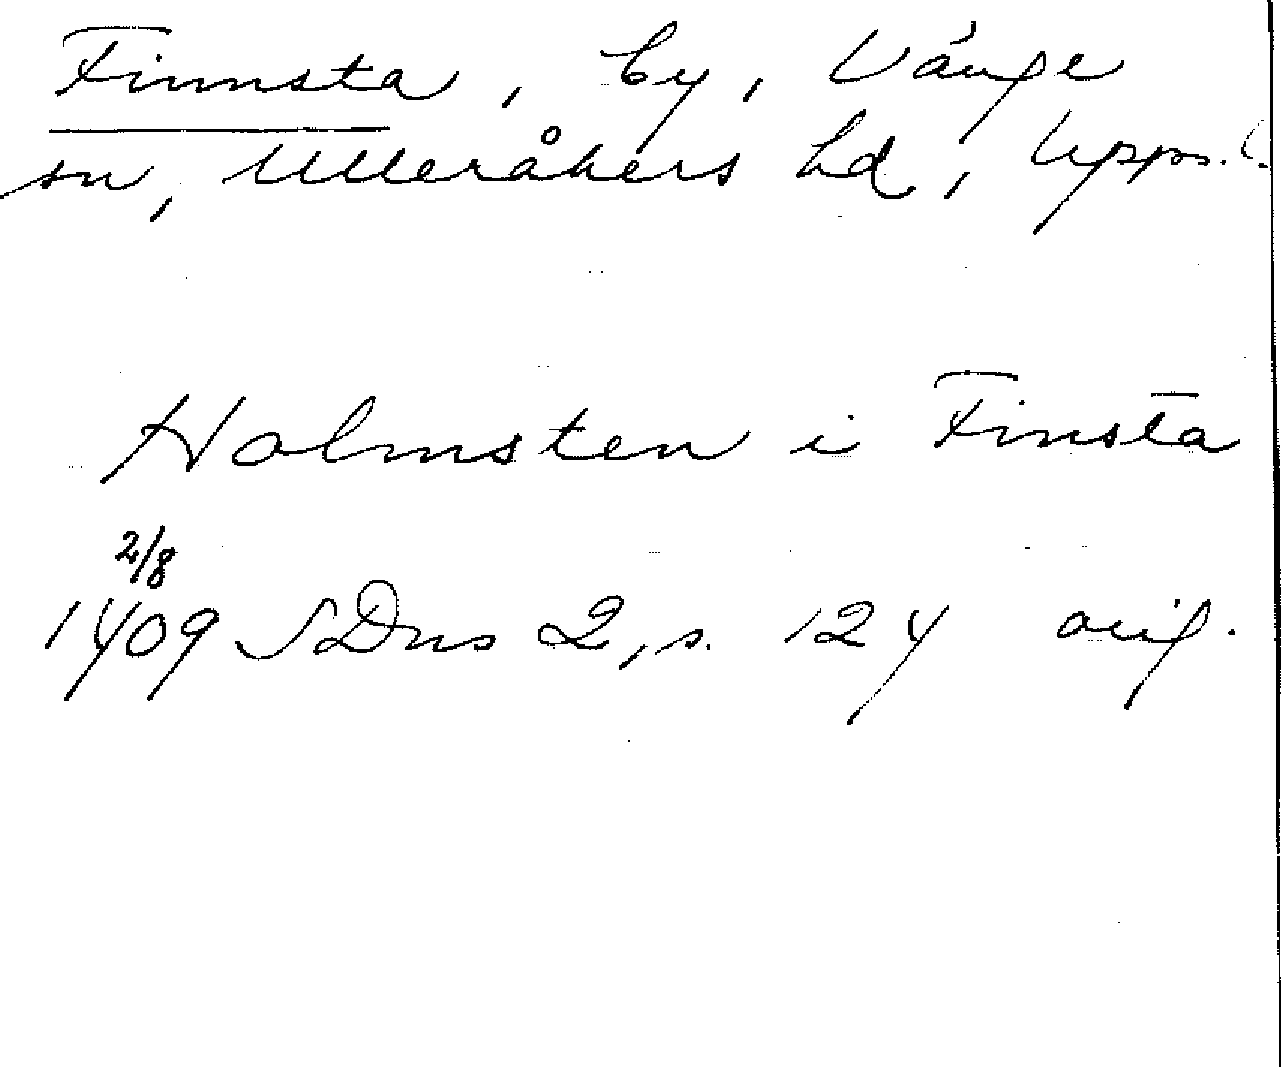 Finnsta, by, Vänge
sn, Ulleråkers hd, Upps. l.
Holmsten i Finsta
2/8
1409 SDns 2, s. 124 orig.